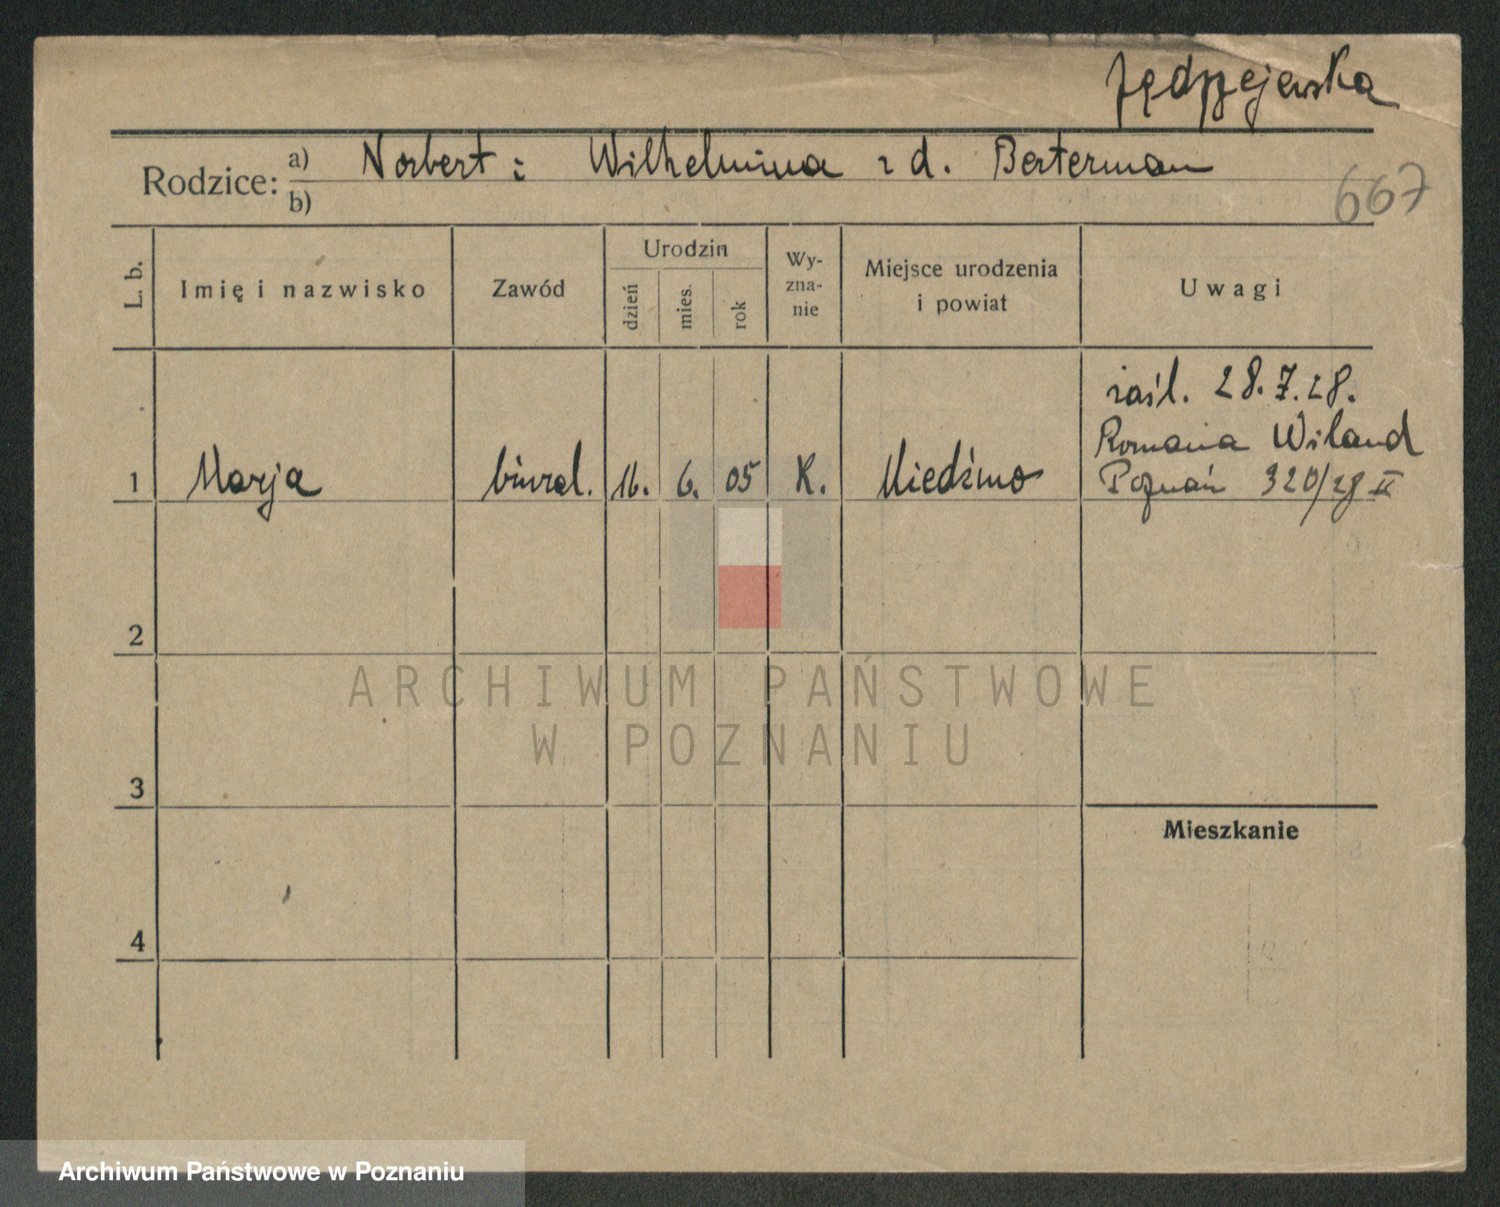 Jędrzejewska
Rodzice: a) Norbert i Wilhelmina z d. Berterman
b)
667
L. b.
Imię i nazwisko
Zawód
Urodzin
dzień
mies.
rok
Wy-
zna-
nie
Miejsce urodzenia
i powiat
Uwagi
1 Marja biural. 16. 6. 05 K. Niedźwno
zaśl. 28.7.28.
Romana Wiland
Poznań 320/28 II
2
3
4
Mieszkanie
ARCHIWUM PAŃSTWOWE
W POZNANIU
Archiwum Państwowe w Poznaniu